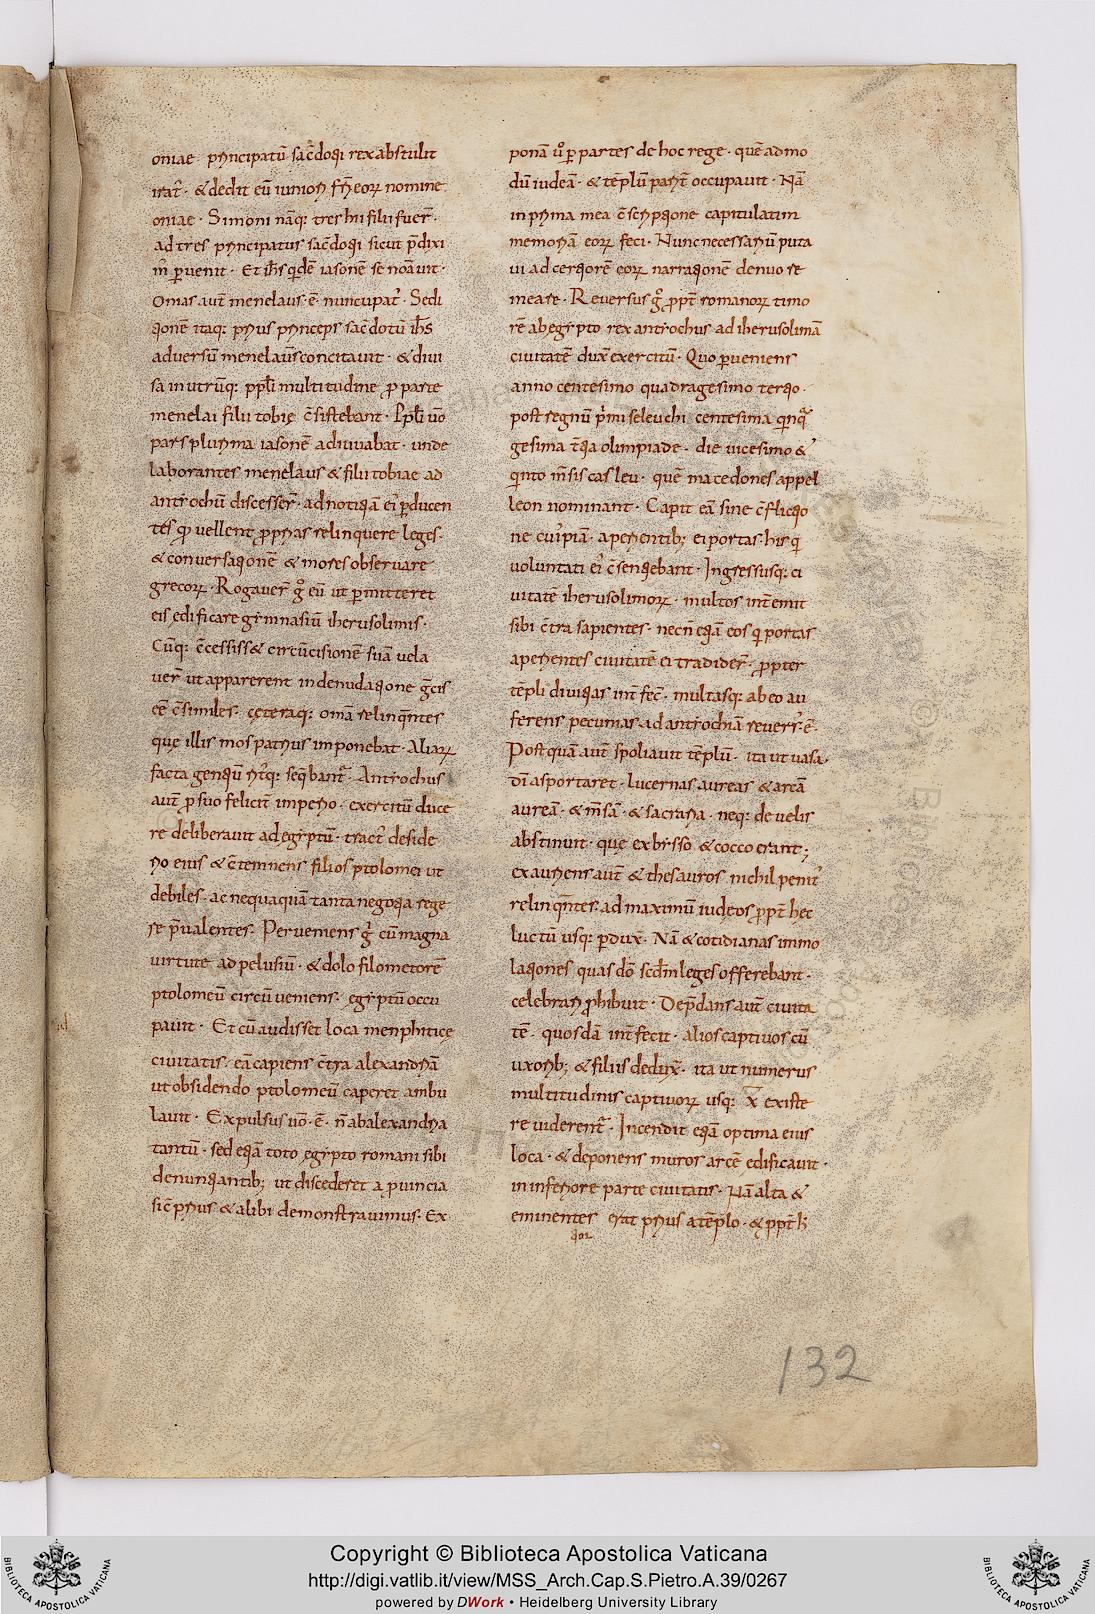 oniae principatū sac̄dotii rex abstulit
irat᷒· & dedit eū iuniori fr̄i eoꝝ nomine
oniae · Simoni nāq; tres hii filii fuer̄ ·
ad tres principatus sac̄dotii sicut p̄dixi
m᷒ ꝑuenit · Et ih̄s qͥdē iasonē se noāuit ·
Onias aut̄ menelaus · ē · nuncupat᷒ · Sedi
tionē itaq; prius princeps sac̄dotū ih̄s
adversū menelaū concitauit · & diui
sa in utrūq; ppl̄i multitudine ꝓ parte
menelai filii tobię c̄sistebant · Ppl̄i ūo
pars plurima iasonē adiuuabat · unde
laborantes menelaus & filii tobiae ad
antiochū discesser̄ · ad notitiā ei᷒ ꝑducen
tes qͩ vellent ꝓprias relinquere leges ·
& conversationē & mores observare
grecoꝝ · Rogaver̄ gͦ eū ut ꝑmitteret
eis edificare gimnasiū iherusolimis ·
Cūq; c̄cessiss& circūcisionē suā vela
uer̄ ut apparerent in denudatione grͣcis
eē c̄similes · ceteraq; omā relinqͥntes
que illis mos patrius imponebat · Aliaꝝ
facta gentiū
aut̄ ꝓ suo felicit̄ imperio · exercitū duce
re deliberauit ad egiptū · tract᷒ deside
rio eius & c̄temnens filios ptolomei ut
debiles · ac nequaquā tanta negotia rege
re p̄ualentes · Perueniens gͦ cū magna
uirtute ad pelusiū · & dolo filometorē
ptolomeū circūueniens · egiptū occu
pauit · Et cū audisset loca menphiticę
ciuitatis · eā capiens c̄tra alexandriā
ut obsidendo ptolomeū caperet ambu
lauit · Expulsus ūo · ē · n̄ ab alexandria
tantū · sed etiā toto egipto romani sibi
denuntiantib; ut discederet a ꝓuincia
sic̄ prius & alibi demonstrauimus · Ex
ponā ūͦ ꝑ partes de hoc rege · quē ad mo
dū iudeā · & tēplū parit̄ occupauit · Nā
in prima mea c̄scriptione capitulatim
memoriā eoꝝ feci · Nunc necessariū puta
ui ad certiorē eoꝝ narrationē denuo re
meare · Reversus gͦ ꝓpt̄ romanoꝝ timo
rē ab egipto rex antiochus ad iherusolimā
ciuitatē dux̄ exercitū · Quo ꝑueniens
anno centesimo quadragesimo tertio ·
post regnū pͥmi seleuchi centesima qͥnqͣ
gesima t̄tia olimpiade · die uicesimo &
qͥnto m̄sis casleu · quē macedones appel
leon nominant · Capit eā sine c̄flictio
ne cui᷒piā · aperientib; ei portas · his qͥ
voluntati ei᷒ c̄sentiebant · Ingressusq; ci
uitatē iherusolimoꝝ · multos int̄emit
sibi c̄tra sapientes · necn̄ etiā eos qͥ portas
aperientes ciuitatē ei tradider̄ · ꝓpter
tēpli diuitias int̄fec̄ · multasq; ab eo au
ferens pecunias · ad antiochiā revers᷒ · ē ·
Post quā aut̄ spoliauit tēplū · ita ut uasa ·
dī asportaret · lucernas aureas & arcā
aureā · & m̄sā · & sacraria · neq; de velis
abstinuit · que ex bisso & cocco erant ;
exauriens aut̄ & thesauros nichil penit᷒
relinqͥntes · ad maximū iudeos ꝓpt̄ hec
luctū usq; ꝑdux̄ · Nā & cotidianas immo
lationes quas dō scd̄m leges offerebant ·
celebrari ꝓhibuit · Dep̄dans aut̄ ciuita
tē · quosdā int̄fecit · alios captivos cū
uxorib; & filiis dedux̄ · ita ut numerus
multitudinis captivoꝝ usq; x̄ existe
re uiderent᷒ · Incendit etiā optima eius
loca · & deponens muros arcē edificauit ·
in inferiore parte ciuitatis · Nā alta &
eminentes erat prius a tēplo · & ꝓpt̄ h̄
132
Copyright © Biblioteca Apostolica Vaticana
http://digi.vatlib.it/view/MSS_Arch.Cap.S.Pietro.A.39/0267
powered by DWork • Heidelberg University Library
BIBLIOTECA APOSTOLICA VATICANA
BIBLIOTECA APOSTOLICA VATICANA